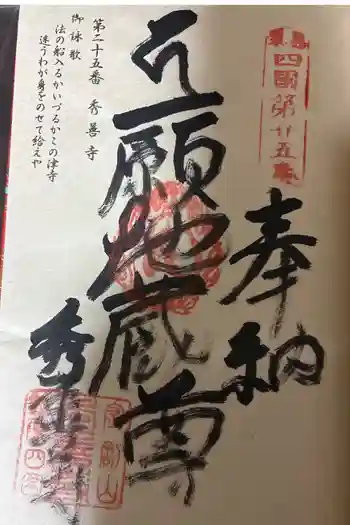 四國第廿五番
奉納
近願地蔵尊
秀善寺
第二十五番 秀善寺
御詠歌
法の船入るかいづるかこの津寺
迷うわが身をのせて給えや